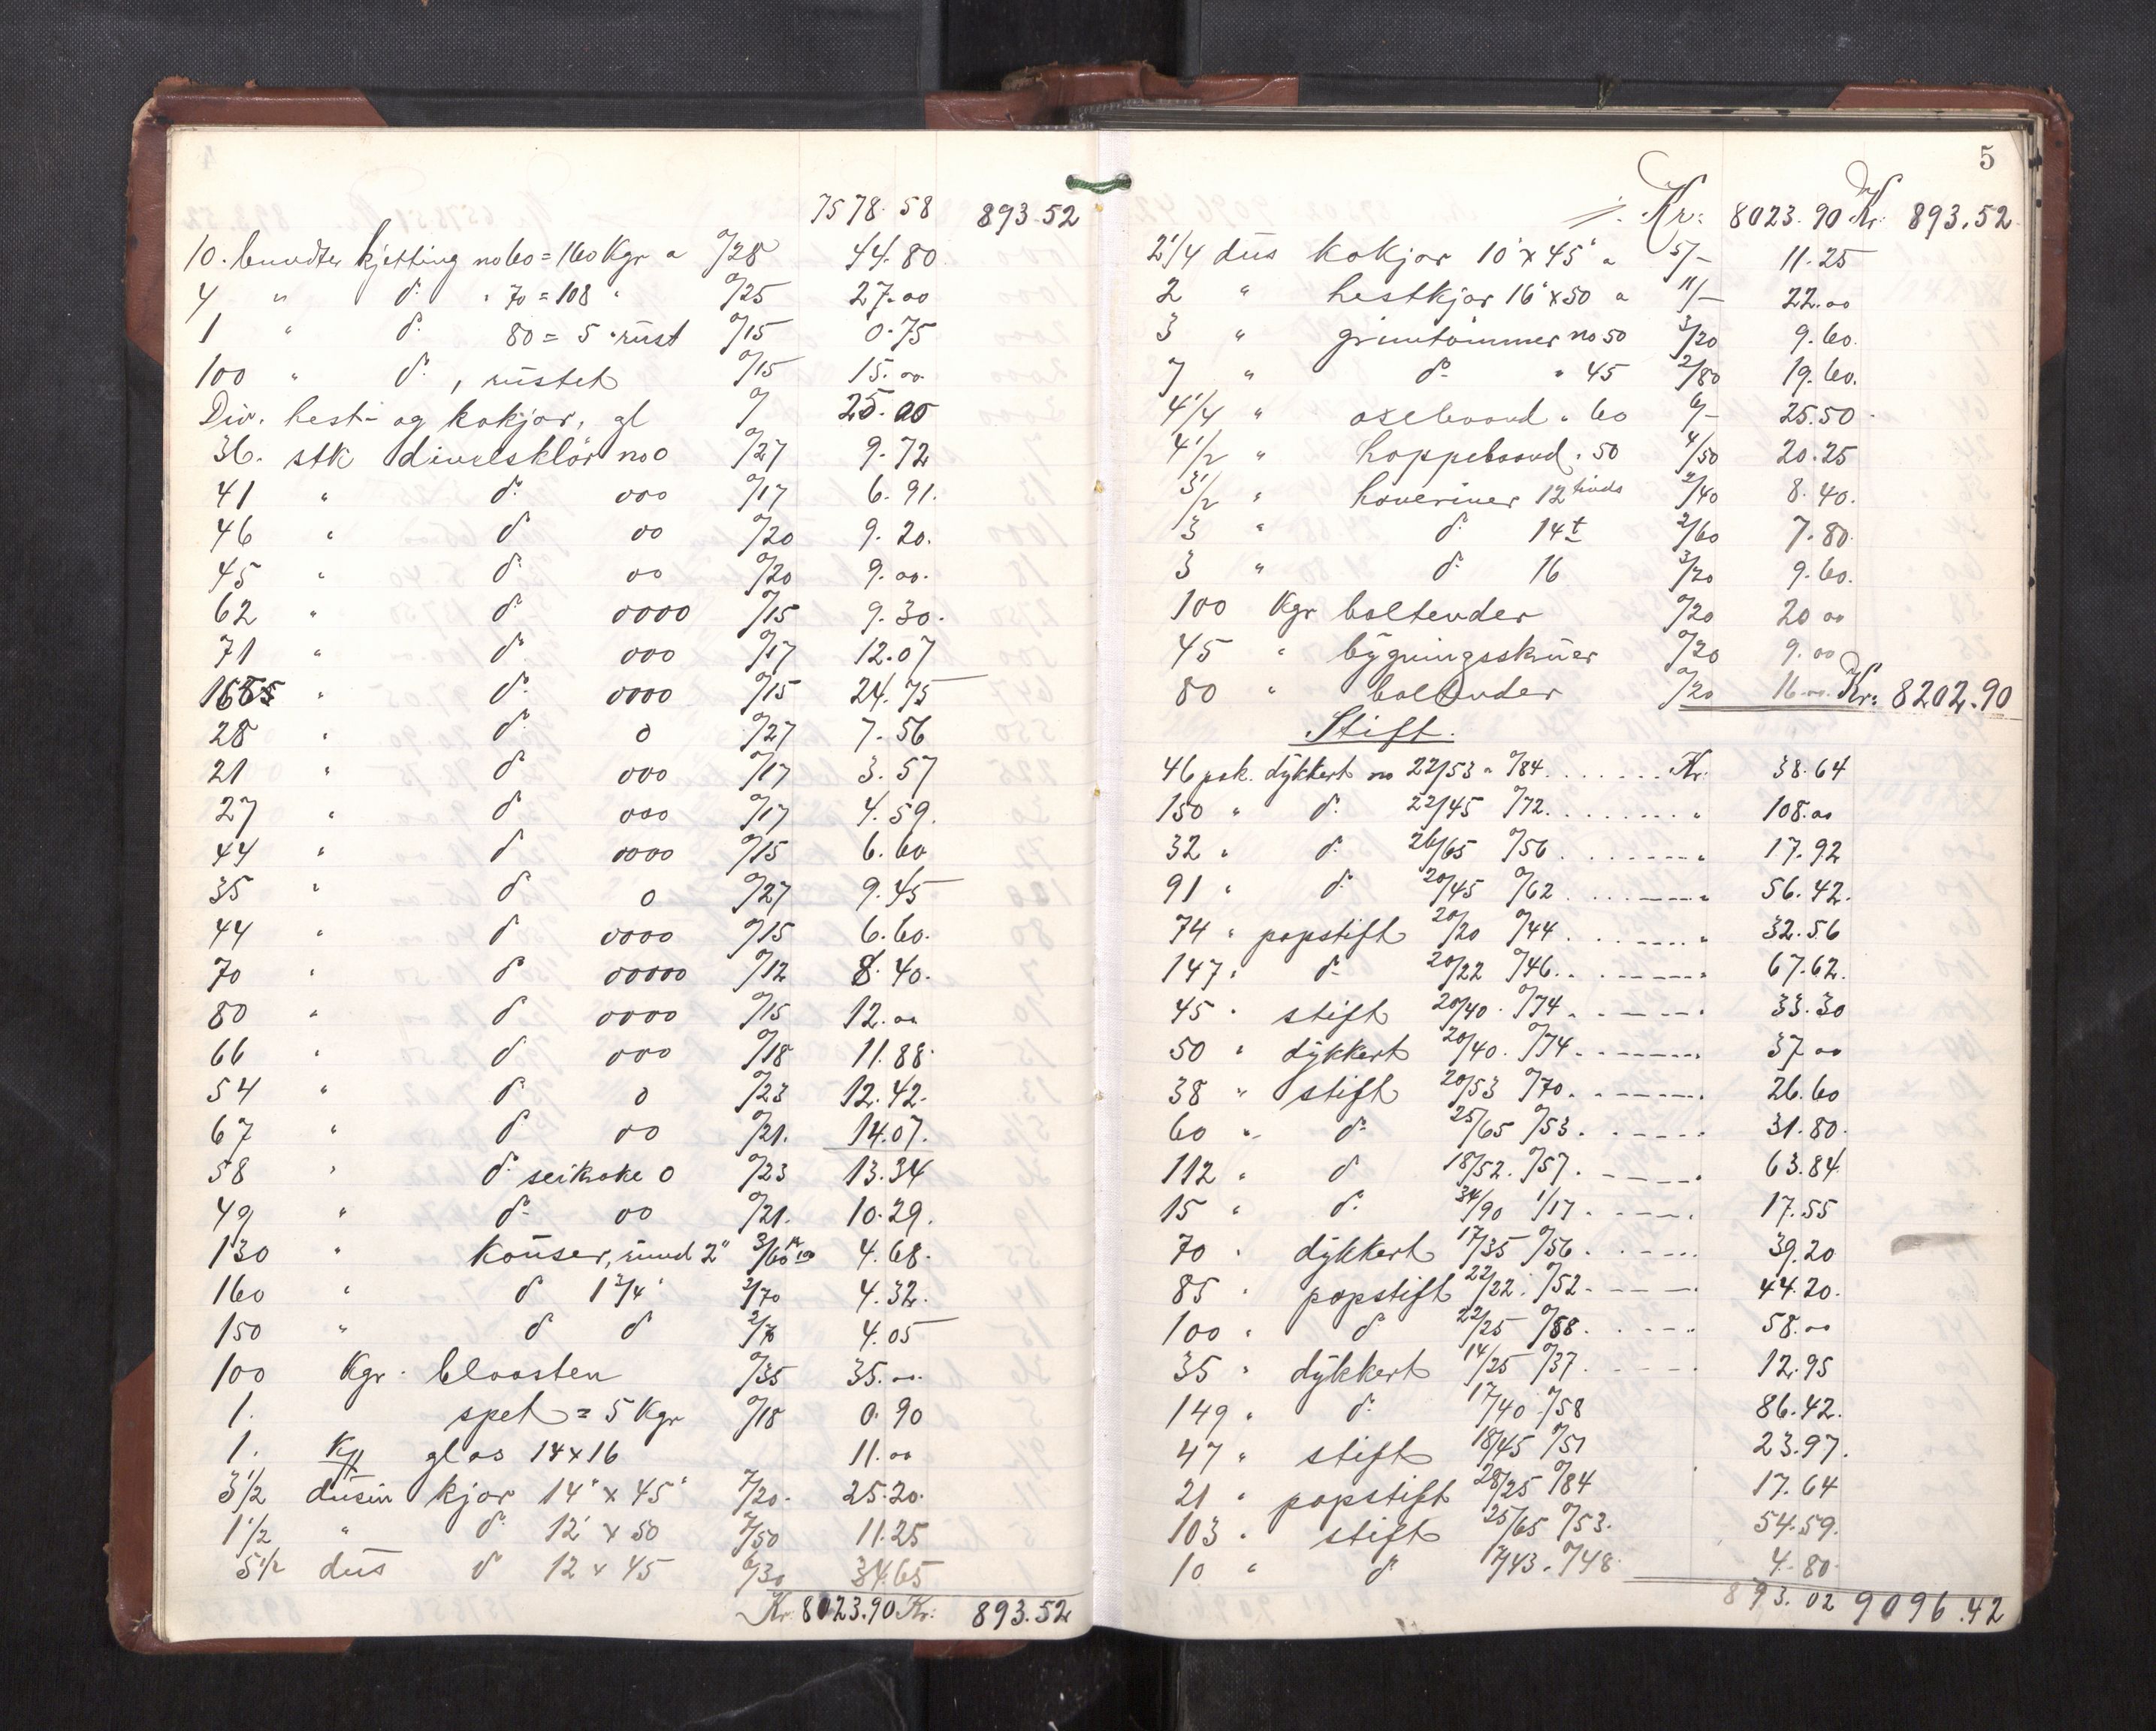 7578.58 893.52
10. bundter kjetting no 60 = 160 Kgr a 0/28 44.80
4 " do " 70 = 108 " 0/25 27.00
1 " do 80 = 5 " rust 0/15 0.75
100 " do , rustet 0/15 15.00
Div. hest- og kokjør, gl 0/ 25.00
36. stk divelsklör no 0 0/27 9.72
41 " do 000 0/17 6.91.
46 " do 00 0/20 9.20.
45 " do 00 0/20 9.00.
62 " do 0000 0/15 9.30.
71 " do 000 0/17 12.07
165 " do 0000 0/15 24.75
28 " do 0 0/27 7.56
21 " do 000 0/17 3.57
27 " do 000 0/17 4.59.
44 " do 0000 0/15 6.60
35 " do 0 0/27 9.45
44 " do 0000 0/15 6.60.
70 " do 00000 0/12 8.40.
80 " do 0000 0/15 12.00
66 " do 000 0/18 11.88.
54 " do 0 0/23 12.42.
67 " do 00 0/21. 14.07.
58 " do seikroke 0 0/23 13.34
49 " do 00 0/21. 10.29.
130 " kouser, rund 2" 3/60 4.68.
160 " do 1 3/4" 2/70 4.32.
150 " do do 2/70 4.05
100 Kgr. blaasten 0/35 35.00.
1. spet = 5 Kgr 0/18 0.90
1. glas 14 x 16 11.00
3 1/2 dusin kjør 14" x 45" 7/20. 25.20.
1 1/2 " do 12" x 50 7/50 11.25
5 1/2 dus do 12 x 45 6/30 34.65
Kr. 8023.90 Kr: 893.52
5
Kr: 8023.90 Kr: 893.52
2 1/4 dus kokjør 10" x 45" a 5/- 11.25
2 " hestkjør 16" x 50 a 11/- 22.00
3 " grimtömmer no 50 3/20 9.60.
7 " do " 45 2/80 19.60.
4 1/4 " oxebaand " 60 6/- 25.50.
4 1/2 " hoppebaand " 50 4/50 20.25
3 1/2 " hoveriver 12 tinds 2/40 8.40.
3 " do 14 t 2/60 7.80.
3 " do 16 3/20 9.60.
100 Kgr boltender 0/20 20.00
45 " bygningsskruer 0/20 9.00
80 " boltender 0/20 16.00. Kr: 8202.90
Stift.
46 psk. dykkert no 22/53 " 0/84 . . . . . . . Kr. 38.64
150 " do 22/45 0/72. . . . . . . . " 108.00
32 " do 26/65 0/56 . . . . . . . " 17.92
91 " do 20/45 0/62 . . . . . . . " 56.42.
74 " papstift 20/20 0/44 . . . . . . . " 32.56
147 " do 20/22 0/46. . . . . . . . " 67.62.
45 " stift 20/40 0/74 . . . . . . . " 33.30
50 " dykkert 20/40. 0/74. . . . . . . " 37.00
38 " stift 20/53 0/70. . . . . . . " 26.60
60 " do 25/65 0/53. . . . . . . 31.80.
112 " do 18/52. 0/57. . . . . . . 63.84
15 " do 34/90 1/17. . . . . . . 17.55
70 " dykkert 17/35 0/56. . . . . . 39.20
85 " papstift 22/22. 0/52. . . . . . 44.20.
100 " do 22/25 0/58. . . . . . 58.00
35 " dykkert 14/25 0/37. . . . . . 12.95
149 " do 17/40 0/58 86.42.
47 " stift 18/45 0/51 23.97.
21 " papstift 28/25 0/84 17.64
103 " stift 25/65 0/53. 54.59.
10 " do 17/43. 0/48. 4.80.
893.02 9096.42